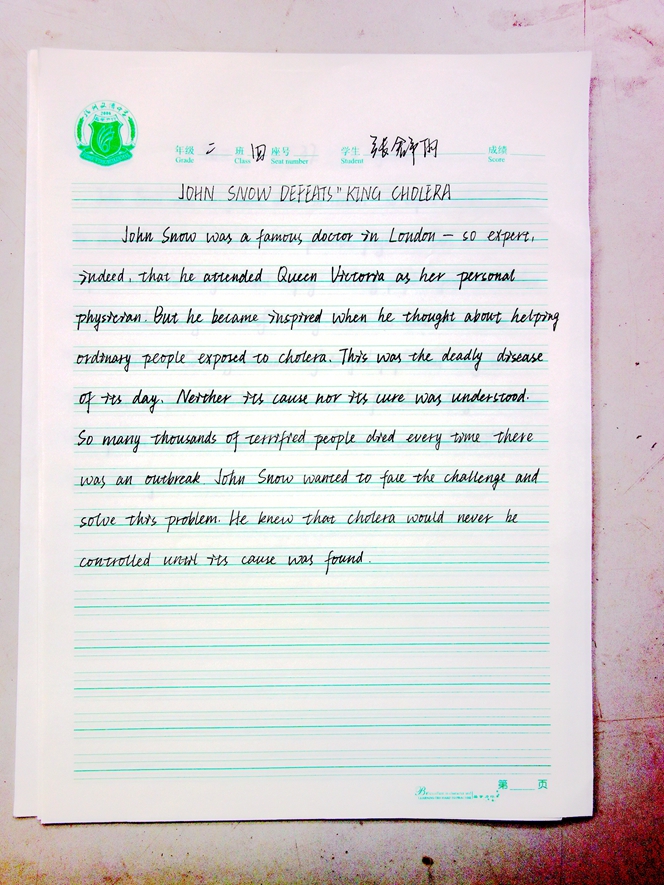 年级 二 班 四 座号 学生 成绩
Grade Class Seat number Student Score
JOHN SNOW DEFEATS "KING CHOLERA
John Snow was a famous doctor in London – so expert,
indeed, that he attended Queen Victoria as her personal
physician. But he became inspired when he thought about helping
ordinary people exposed to cholera. This was the deadly disease
of its day. Neither its cause nor its cure was understood.
So many thousands of terrified people died every time there
was an outbreak. John Snow wanted to face the challenge and
solve this problem. He knew that cholera would never be
controlled until its cause was found.
第 页